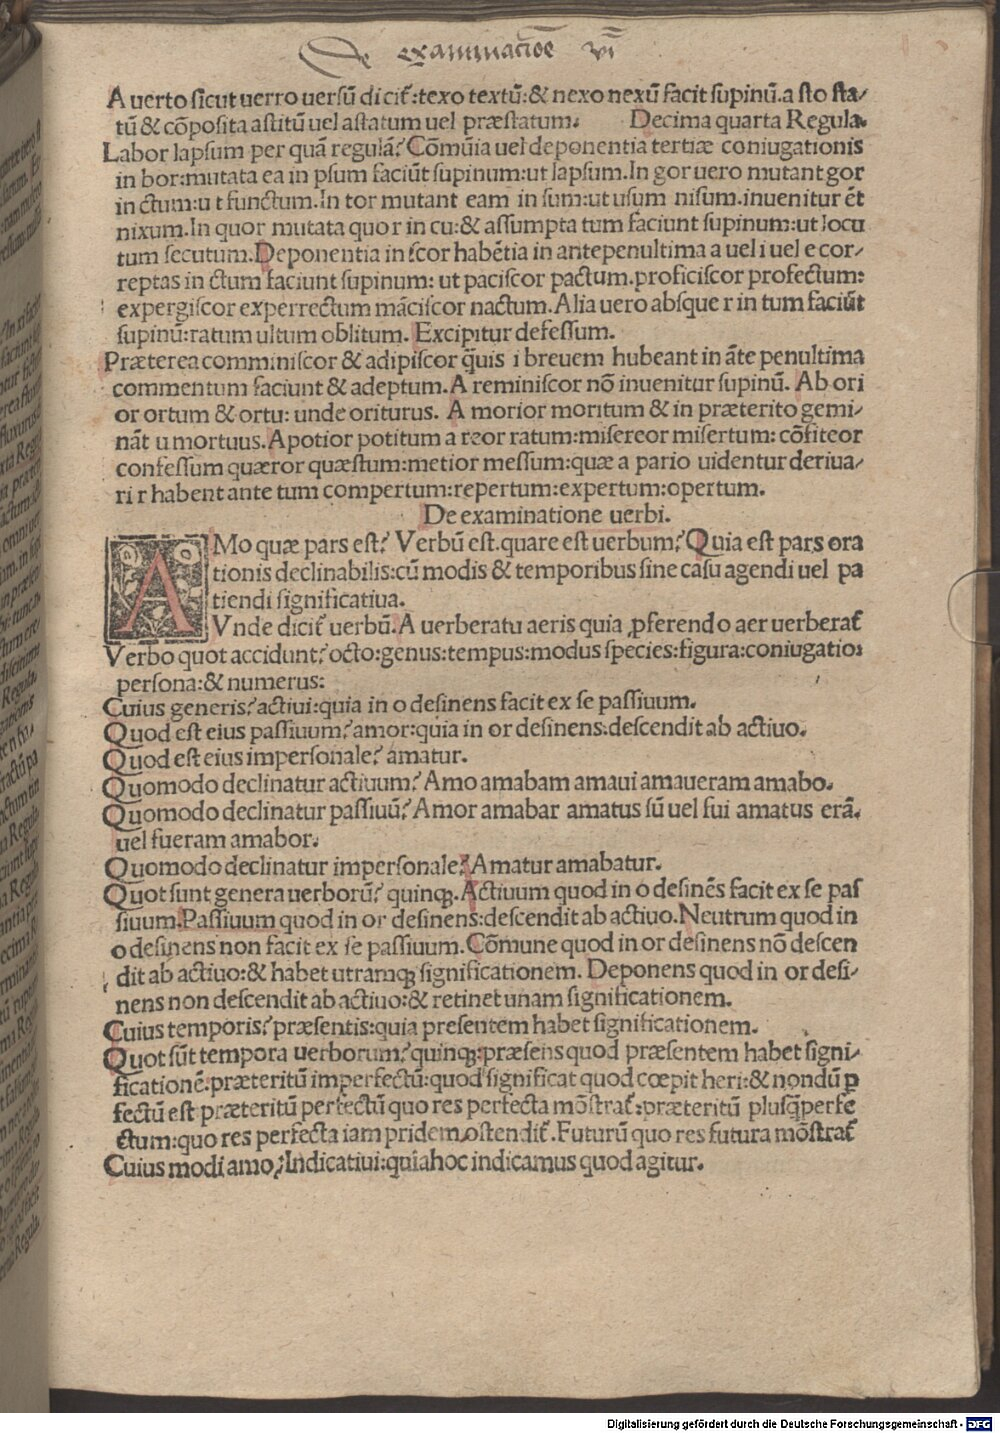 De examinatiōe vi
A uerto sicut uerro uersū dicit᷒:texo textū:& nexo nexū facit supinū.a sto sta/
tū & cōposita astitū uel astatum uel præstatum. Decima quarta Regula.
Labor lapsum per quā regulā? Cōmūia uel deponentia tertiæ coniugationis
in bor:mutata ea in psum faciūt supinum:ut lapsum.In gor uero mutant gor
in ctum:u t functum.In tor mutant eam in sum:ut usum nisum.inuenitur ēt
nixum.In quor mutata quo r in cu:& assumpta tum faciunt supinum:ut locu
tum secutum.Deponentia in scor habētia in antepenultima a uel i uel e cor/
reptas in ctum faciunt supinum: ut paciscor pactum.proficiscor profectum:
expergiscor experrectum māciscor nactum.Alia uero absque r in tum faciūt
supinū:ratum ultum oblitum. Excipitur defessum.
Præterea comminiscor & adipiscor q̄uis i breuem hubeant in āte penultima
commentum faciunt & adeptum.A reminiscor nō inuenitur supinū. Ab ori
or ortum & ortu: unde oriturus. A morior moritum & in præterito gemi/
nāt u mortuus.A potior potitum a reor ratum:misereor misertum: cōfiteor
confessum quæror quæstum:metior messum:quæ a pario uidentur deriua/
ri r habent ante tum compertum:repertum:expertum:opertum.
De examinatione uerbi.
AMo quæ pars est? Verbū est.quare est uerbum? Quia est pars ora
tionis declinabilis:cū modis & temporibus sine casu agendi uel pa
tiendi significatiua.
Vnde dicit᷒ uerbū.A uerberatu aeris quia ꝓferendo aer uerberat᷒
Verbo quot accidunt? octo:genus:tempus:modus species:figura:coniugatio:
persona:& numerus:
Cuius generis? actiui:quia in o desinens facit ex se passiuum.
Quod est eius passiuum? amor:quia in or desinens:descendit ab actiuo.
Quod est eius impersonale? amatur.
Quomodo declinatur actiuum? Amo amabam amaui amaueram amabo.
Quomodo declinatur passiuū? Amor amabar amatus sū uel fui amatus erā.
uel fueram amabor.
Quomodo declinatur impersonale? Amatur amabatur.
Quot sunt genera uerborū? quinqꝫ. Actiuum quod in o desinēs facit ex se pas
siuum.Passiuum quod in or desinens:descendit ab actiuo.Neutrum quod in
o desinens non facit ex se passiuum.Cōmune quod in or desinens nō descen
dit ab actiuo:& habet utramqꝫ significationem. Deponens quod in or desi/
nens non descendit ab actiuo:& retinet unam significationem.
Cuius temporis? præsentis:quia presentem habet significationem.
Quot sūt tempora uerborum? quinqꝫ:præsens quod præsentem habet signi/
ficationē:præteritū imperfectū:quod significat quod cœpit heri:& nondū ꝑ
fectū est præteritū perfectū quo res perfecta mōstrat᷒:præteritū plusq̄perfe
ctum:quo res perfecta iam pridem ostendit᷒.Futurū quo res futura mōstrat᷒
Cuius modi amo? Indicatiui:quia hoc indicamus quod agitur.
Digitalisierung gefördert durch die Deutsche Forschungsgemeinschaft - DFG